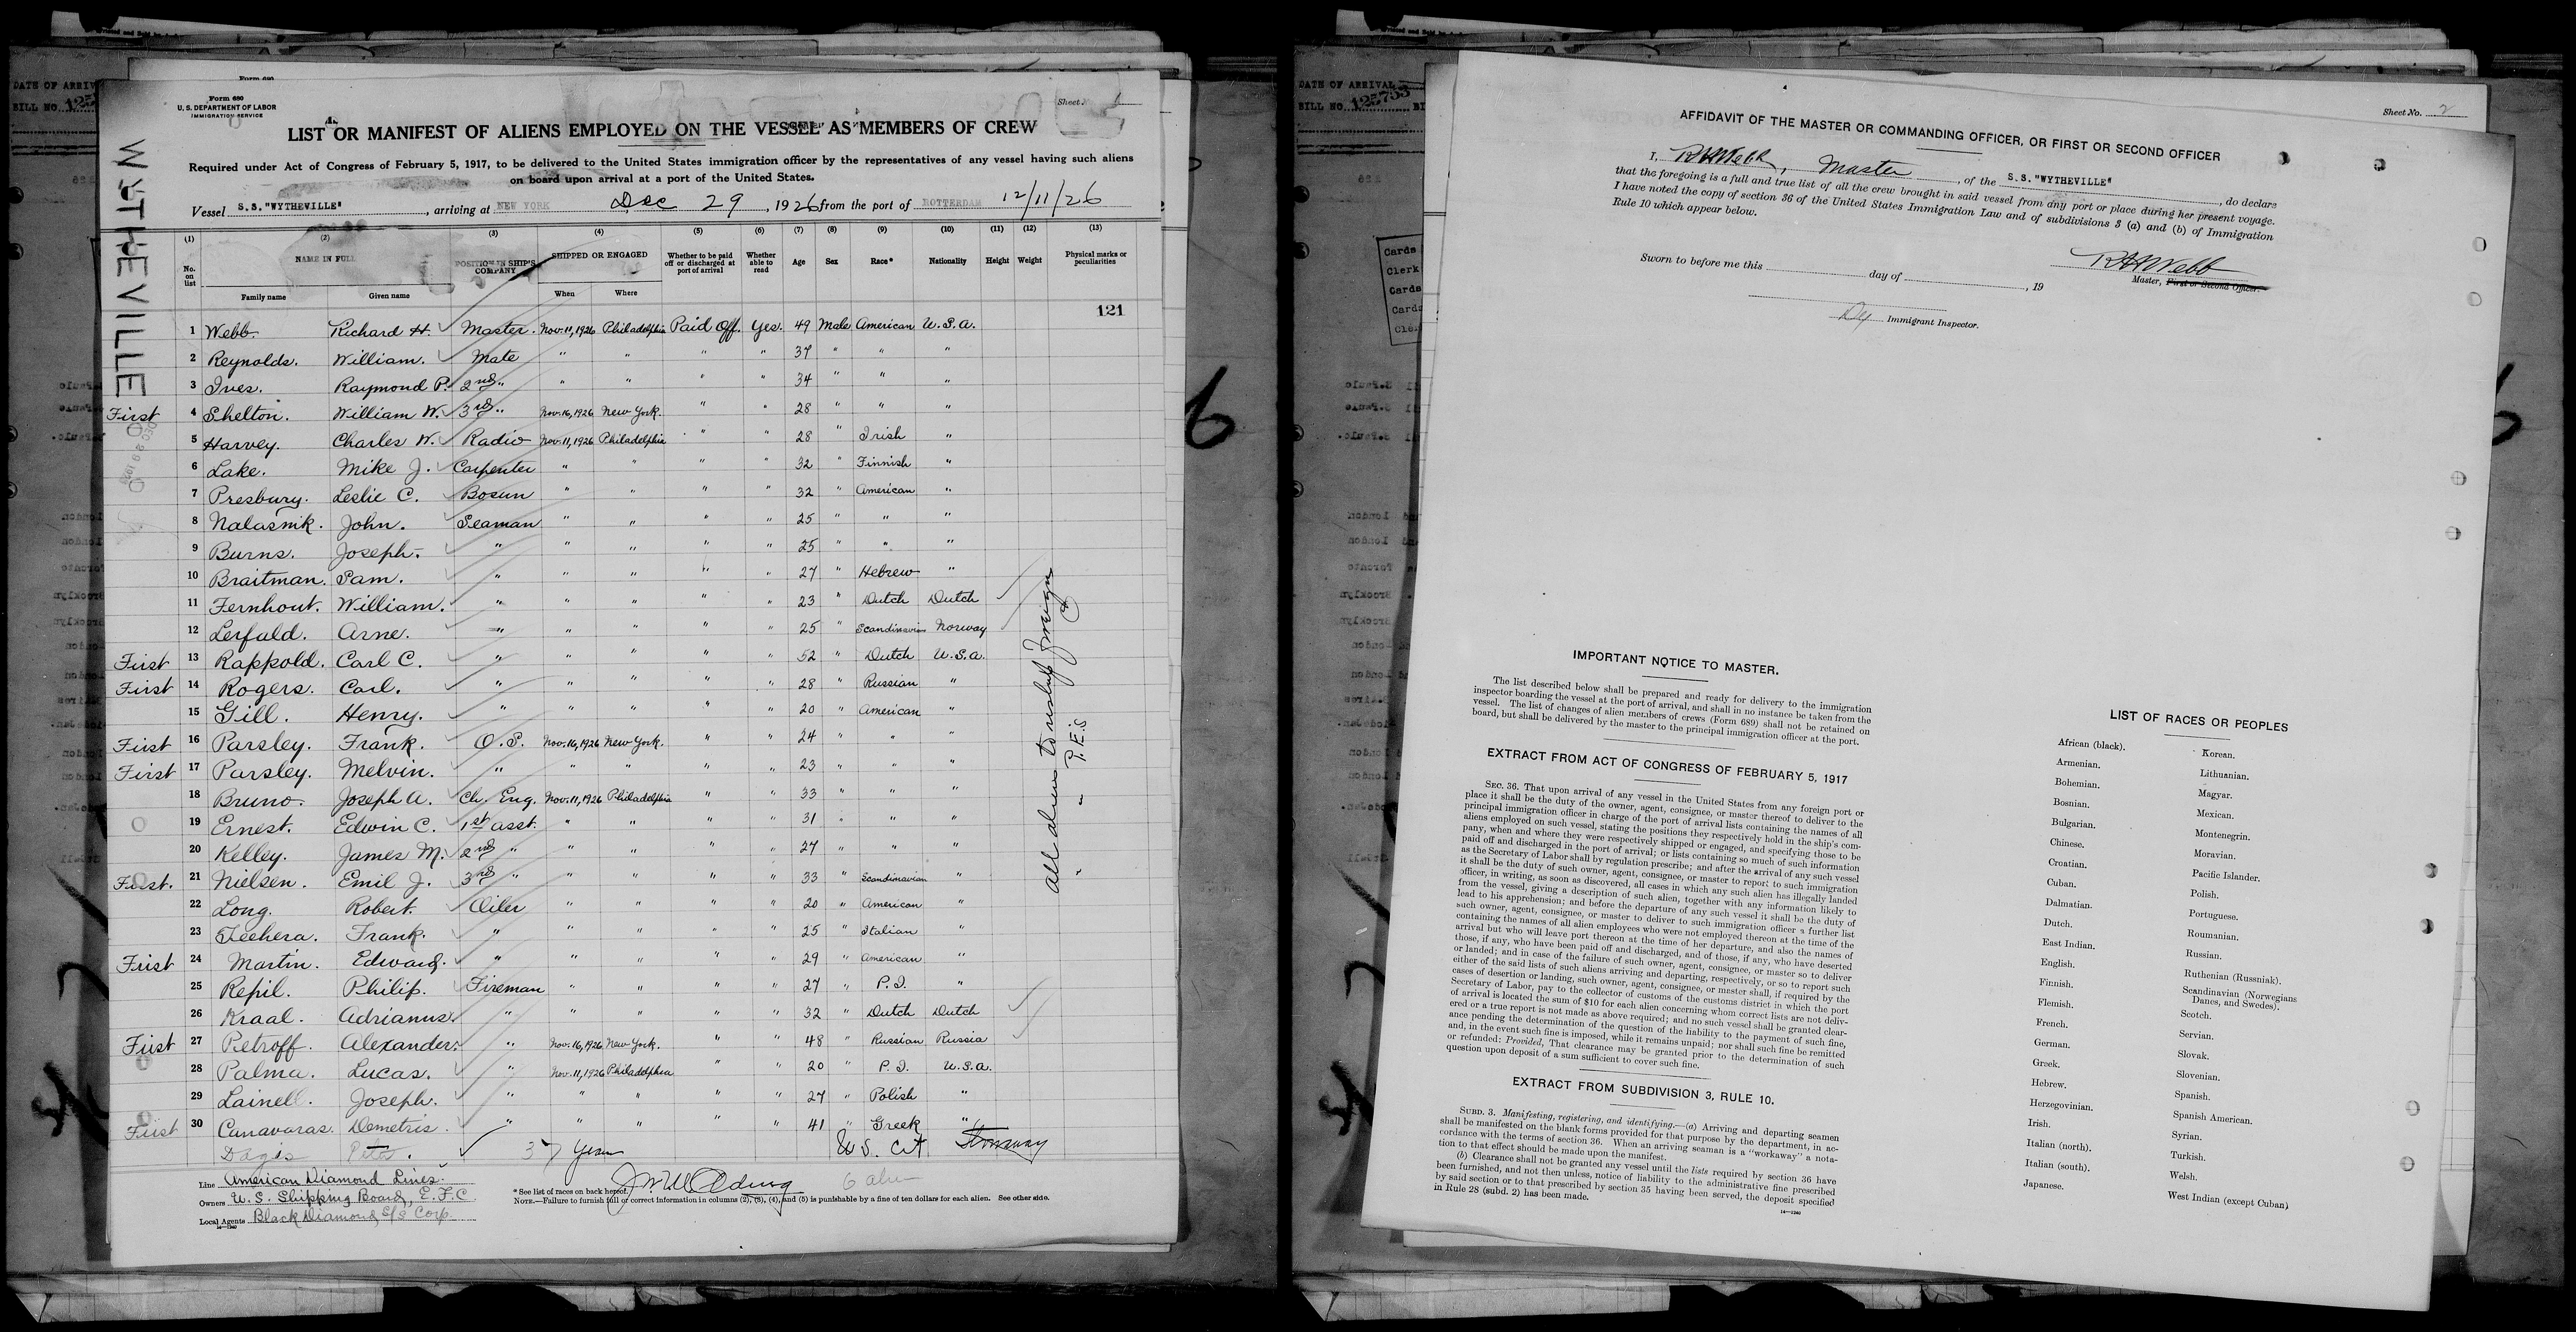 Form 680
U. S. DEPARTMENT OF LABOR
IMMIGRATION SERVICE
Sheet 1
LIST OR MANIFEST OF ALIENS EMPLOYED ON THE VESSEL AS MEMBERS OF CREW
Required under Act of Congress of February 5, 1917, to be delivered to the United States immigration officer by the representatives of any vessel having such aliens
on board upon arrival at a port of the United States.
Vessel S.S. "WYTHEVILLE", arriving at NEW YORK Dec 29, 1926 from the port of ROTTERDAM 12/11/26
WYTHEVILLE
(1) (2) (3) (4) (5) (6) (7) (8) (9) (10) (11) (12) (13)
No. on list NAME IN FULL Family name Given name POSITION IN SHIP'S COMPANY SHIPPED OR ENGAGED When Where Whether to be paid off or discharged at port of arrival Whether able to read Age Sex Race* Nationality Height Weight Physical marks or peculiarities
121
1 Webb. Richard H. Master. Nov. 11, 1926 Philadelphia Paid Off. Yes. 49 Male American U.S.A.
2 Reynolds. William. Mate " " " " 37 " " "
3 Ives. Raymond P. 2nd " " " " " 34 " " "
First 4 Shelton. William W. 3rd " Nov. 16, 1926 New York. " " 28 " " "
5 Harvey. Charles W. Radio Nov. 11, 1926 Philadelphia " " 28 " Irish "
6 Lake. Mike J. Carpenter " " " " 32 " Finnish "
7 Presbury. Leslie C. Bosun " " " " 32 " American "
8 Nalasnik. John. Seaman " " " " 25 " " "
9 Burns. Joseph. " " " " " 25 " " "
10 Braitman. Sam. " " " " " 27 " Hebrew "
11 Fernhout. William. " " " " " 23 " Dutch Dutch
12 Lerfald. Arne. " " " " " 25 " Scandinavian Norway
First 13 Rappold. Carl C. " " " " " 52 " Dutch U.S.A.
First 14 Rogers. Carl. " " " " " 28 " Russian "
15 Gill. Henry. " " " " " 20 " American "
First 16 Parsley. Frank. O.S. Nov. 16, 1926 New York. " " 24 " " "
First 17 Parsley. Melvin. " " " " " 23 " " "
18 Bruno. Joseph A. Ch. Eng. Nov. 11, 1926 Philadelphia " " 33 " " "
19 Ernest. Edwin C. 1st asst. " " " " 31 " " "
20 Kelley. James M. 2nd " " " " " 27 " " "
First. 21 Nielsen. Emil J. 3rd " " " " " 33 " Scandinavian "
22 Long. Robert. Oiler " " " " 20 " American "
23 Techera. Frank. " " " " " 25 " Italian "
First 24 Martin. Edward. " " " " " 29 " American "
25 Repil. Philip. Fireman " " " " 27 " P.I. "
26 Kraal. Adrianus. " " " " " 32 " Dutch Dutch
First 27 Petroff. Alexander. " Nov. 16, 1926 New York. " " 48 " Russian Russia
28 Palma. Lucas. " Nov. 11, 1926 Philadelphia " " 20 " P.I. U.S.A.
29 Lainell. Joseph. " " " " " 27 " Polish "
First 30 Canavaras. Demetris. " " " " " 41 " Greek "
Dagis Peter. 37 Years U.S. Cit Stowaway
All aliens to reship Foreign
" " P.E.S.
Line American Diamond Lines.
Owners U.S. Shipping Board, E.F.C.
Local Agents Black Diamond S/S Corp.
14—1240
* See list of races on back hereof.
NOTE.—Failure to furnish full or correct information in columns (2), (3), (4), and (5) is punishable by a fine of ten dollars for each alien. See other side.
DATE OF ARRIVAL
BILL NO. 125733
Sheet No. 2
AFFIDAVIT OF THE MASTER OR COMMANDING OFFICER, OR FIRST OR SECOND OFFICER
I, R H Webb, Master, of the S.S. "WYTHEVILLE", do declare
that the foregoing is a full and true list of all the crew brought in said vessel from any port or place during her present voyage.
I have noted the copy of section 36 of the United States Immigration Law and of subdivisions 3 (a) and (b) of Immigration
Rule 10 which appear below.
R H Webb
Master, First or Second Officer.
Sworn to before me this day of , 19
Immigrant Inspector.
IMPORTANT NOTICE TO MASTER.
The list described below shall be prepared and ready for delivery to the immigration
inspector boarding the vessel at the port of arrival, and shall in no instance be taken from the
vessel. The list of changes of alien members of crews (Form 689) shall not be retained on
board, but shall be delivered by the master to the principal immigration officer at the port.
EXTRACT FROM ACT OF CONGRESS OF FEBRUARY 5, 1917
SEC. 36. That upon arrival of any vessel in the United States from any foreign port or
place it shall be the duty of the owner, agent, consignee, or master thereof to deliver to the
principal immigration officer in charge of the port of arrival lists containing the names of all
aliens employed on such vessel, stating the positions they respectively hold in the ship's com-
pany, when and where they were respectively shipped or engaged, and specifying those to be
paid off and discharged in the port of arrival; or lists containing so much of such information
as the Secretary of Labor shall by regulation prescribe; and after the arrival of any such vessel
it shall be the duty of such owner, agent, consignee, or master to report to such immigration
officer, in writing, as soon as discovered, all cases in which any such alien has illegally landed
from the vessel, giving a description of such alien, together with any information likely to
lead to his apprehension; and before the departure of any such vessel it shall be the duty of
such owner, agent, consignee, or master to deliver to such immigration officer a further list
containing the names of all alien employees who were not employed thereon at the time of the
arrival but who will leave port thereon at the time of her departure, and also the names of
those, if any, who have been paid off and discharged, and of those, if any, who have deserted
or landed; and in case of the failure of such owner, agent, consignee, or master so to deliver
either of the said lists of such aliens arriving and departing, respectively, or so to report such
cases of desertion or landing, such owner, agent, consignee, or master shall, if required by the
Secretary of Labor, pay to the collector of customs of the customs district in which the port
of arrival is located the sum of $10 for each alien concerning whom correct lists are not deliv-
ered or a true report is not made as above required; and no such vessel shall be granted clear-
ance pending the determination of the question of the liability to the payment of such fine,
and, in the event such fine is imposed, while it remains unpaid; nor shall such fine be remitted
or refunded: Provided, That clearance may be granted prior to the determination of such
question upon deposit of a sum sufficient to cover such fine.
EXTRACT FROM SUBDIVISION 3, RULE 10.
SUBD. 3. Manifesting, registering, and identifying.—(a) Arriving and departing seamen
shall be manifested on the blank forms provided for that purpose by the department, in ac-
cordance with the terms of section 36. When an arriving seaman is a "workaway" a nota-
tion to that effect should be made upon the manifest.
(b) Clearance shall not be granted any vessel until the lists required by section 36 have
been furnished, and not then unless, notice of liability to the administrative fine prescribed
by said section or to that prescribed by section 35 having been served, the deposit specified
in Rule 28 (subd. 2) has been made.
14—1240
LIST OF RACES OR PEOPLES
African (black).
Armenian.
Bohemian.
Bosnian.
Bulgarian.
Chinese.
Croatian.
Cuban.
Dalmatian.
Dutch.
East Indian.
English.
Finnish.
Flemish.
French.
German.
Greek.
Hebrew.
Herzegovinian.
Irish.
Italian (north).
Italian (south).
Japanese.
Korean.
Lithuanian.
Magyar.
Mexican.
Montenegrin.
Moravian.
Pacific Islander.
Polish.
Portuguese.
Roumanian.
Russian.
Ruthenian (Russniak).
Scandinavian (Norwegians
Danes, and Swedes).
Scotch.
Servian.
Slovak.
Slovenian.
Spanish.
Spanish American.
Syrian.
Turkish.
Welsh.
West Indian (except Cuban)